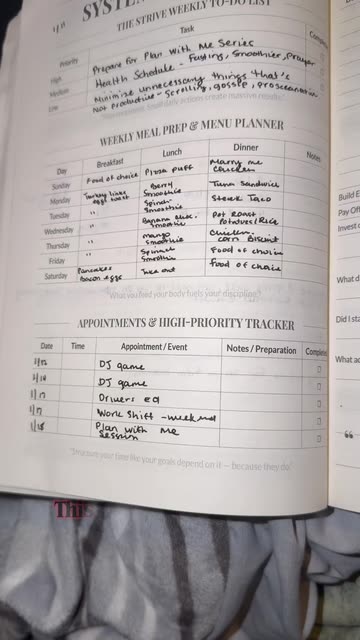 1/11
SYSTEM
THE STRIVE WEEKLY TO-DO LIST
Priority Task Comple
High Prepare for Plan With Me Series
Medium Health Schedule - Fasting, Smoothies, prayer
Low Minimize unnecessary things that's
not productive - Scrolling, gossip,
daily actions create massive results."
WEEKLY MEAL PREP & MENU PLANNER
Day Breakfast Lunch Dinner Notes
Sunday Food of choice Pizza puff Marry me chicken
Monday Turkey links egg toast Berry smoothie Tuna Sandwich
Tuesday " Spinach Smoothie Steak Taco
Wednesday " Banana Smoothie Pot Roast Potatoes/Rice
Thursday " mango smoothie Chicken, corn Biscuit
Friday " Spinach Smoothie Food of choice
Saturday Pancakes Bacon eggs Take out Food of choice
"What you feed your body fuels your discipline."
APPOINTMENTS & HIGH-PRIORITY TRACKER
Date Time Appointment / Event Notes / Preparation Complete
1/12 DJ game
DJ game
Drivers ed
1/17 Work Shift - weekend
1/18 Plan with me Session
"Structure your time like your goals depend on it — because they do."
This
Build E
Pay Off
Invest
What d
Did I sta
What ac
"